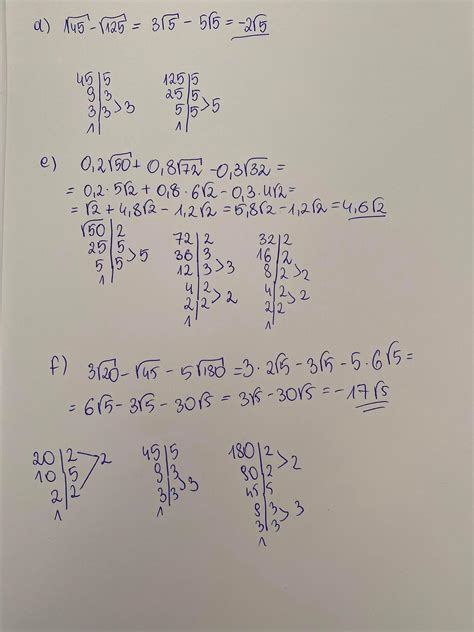 d) √45 - √125 = 3√5 - 5√5 = -2√5
45|5
9|3
3|3 >3
1
125|5
25|5
5|5 >5
1
e) 0,2√50 + 0,8√72 - 0,3√32 =
= 0,2·5√2 + 0,8·6√2 - 0,3·4√2 =
= √2 + 4,8√2 - 1,2√2 = 5,8√2 - 1,2√2 = 4,6√2
√50|2
25|5
5|5 >5
1
72|2
36|3
12|3 >3
4|2
2|2 >2
1
32|2
16|2
8|2 >2
4|2
2|2 >2
1
f) 3√20 - √45 - 5√180 = 3·2√5 - 3√5 - 5·6√5 =
= 6√5 - 3√5 - 30√5 = 3√5 - 30√5 = -17√5
20|2
10|5 >2
2|2
1
45|5
9|3
3|3 >3
1
180|2
90|2 >2
45|5
9|3
3|3 >3
1